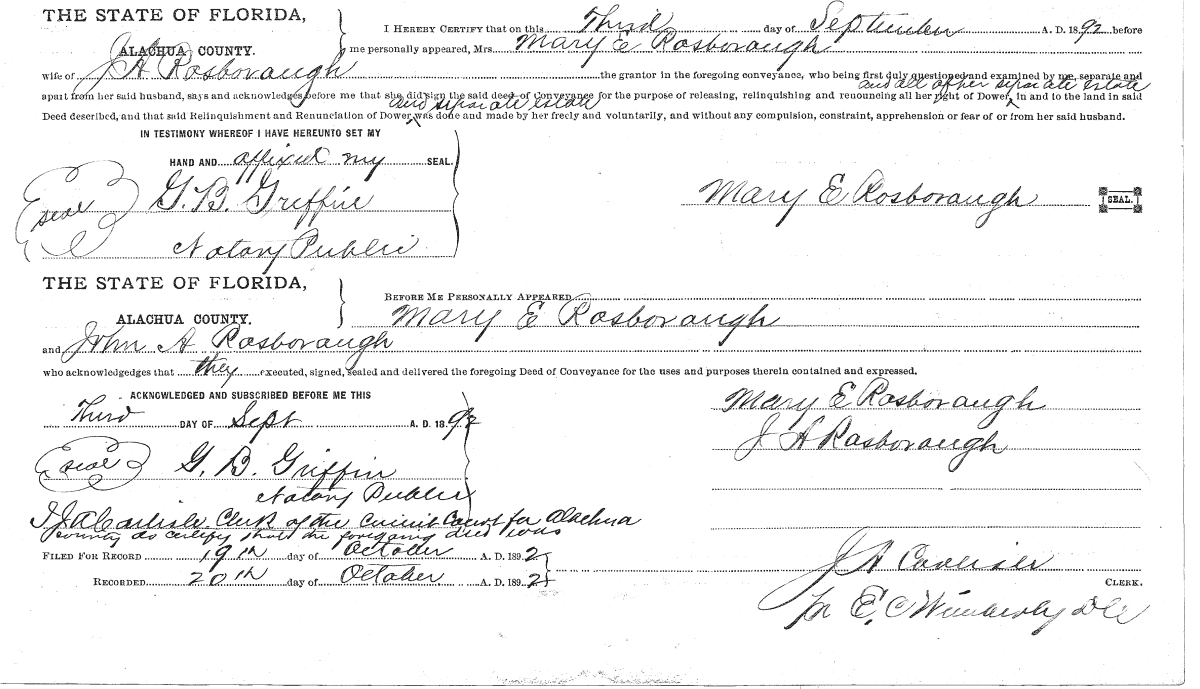 THE STATE OF FLORIDA,
ALACHUA COUNTY.
I HEREBY CERTIFY that on this Third day of September A. D. 1892 before
me personally appeared, Mrs. Mary E Rosborough
wife of J A Rosborough the grantor in the foregoing conveyance, who being first duly questioned and examined by me, separate and
and all other separate estate
apart from her said husband, says and acknowledges before me that she did sign the said deed of Conveyance for the purpose of releasing, relinquishing and renouncing all her right of Dower, in and to the land in said
and separate estate
Deed described, and that said Relinquishment and Renunciation of Dower was done and made by her freely and voluntarily, and without any compulsion, constraint, apprehension or fear of or from her said husband.
IN TESTIMONY WHEREOF I HAVE HEREUNTO SET MY
HAND AND affixed my SEAL.
seal G. B. Griffin
Mary E Rosborough SEAL.
Notary Public
THE STATE OF FLORIDA,
ALACHUA COUNTY.
BEFORE ME PERSONALLY APPEARED
Mary E Rosborough
and John A Rosborough
who acknowledgedges that they executed, signed, sealed and delivered the foregoing Deed of Conveyance for the uses and purposes therein contained and expressed.
ACKNOWLEDGED AND SUBSCRIBED BEFORE ME THIS
Third DAY OF Sept A. D. 1892
Mary E Rosborough
J A Rosborough
seal G. B. Griffin
Notary Public
I, J A Carlisle Clerk of the Circuit Court for Alachua
County do certify that the foregoing deed was
FILED FOR RECORD 19th day of October A. D. 1892
RECORDED 20th day of October A. D. 1892
J A Carlisle
CLERK.
E. C Wimberly D C